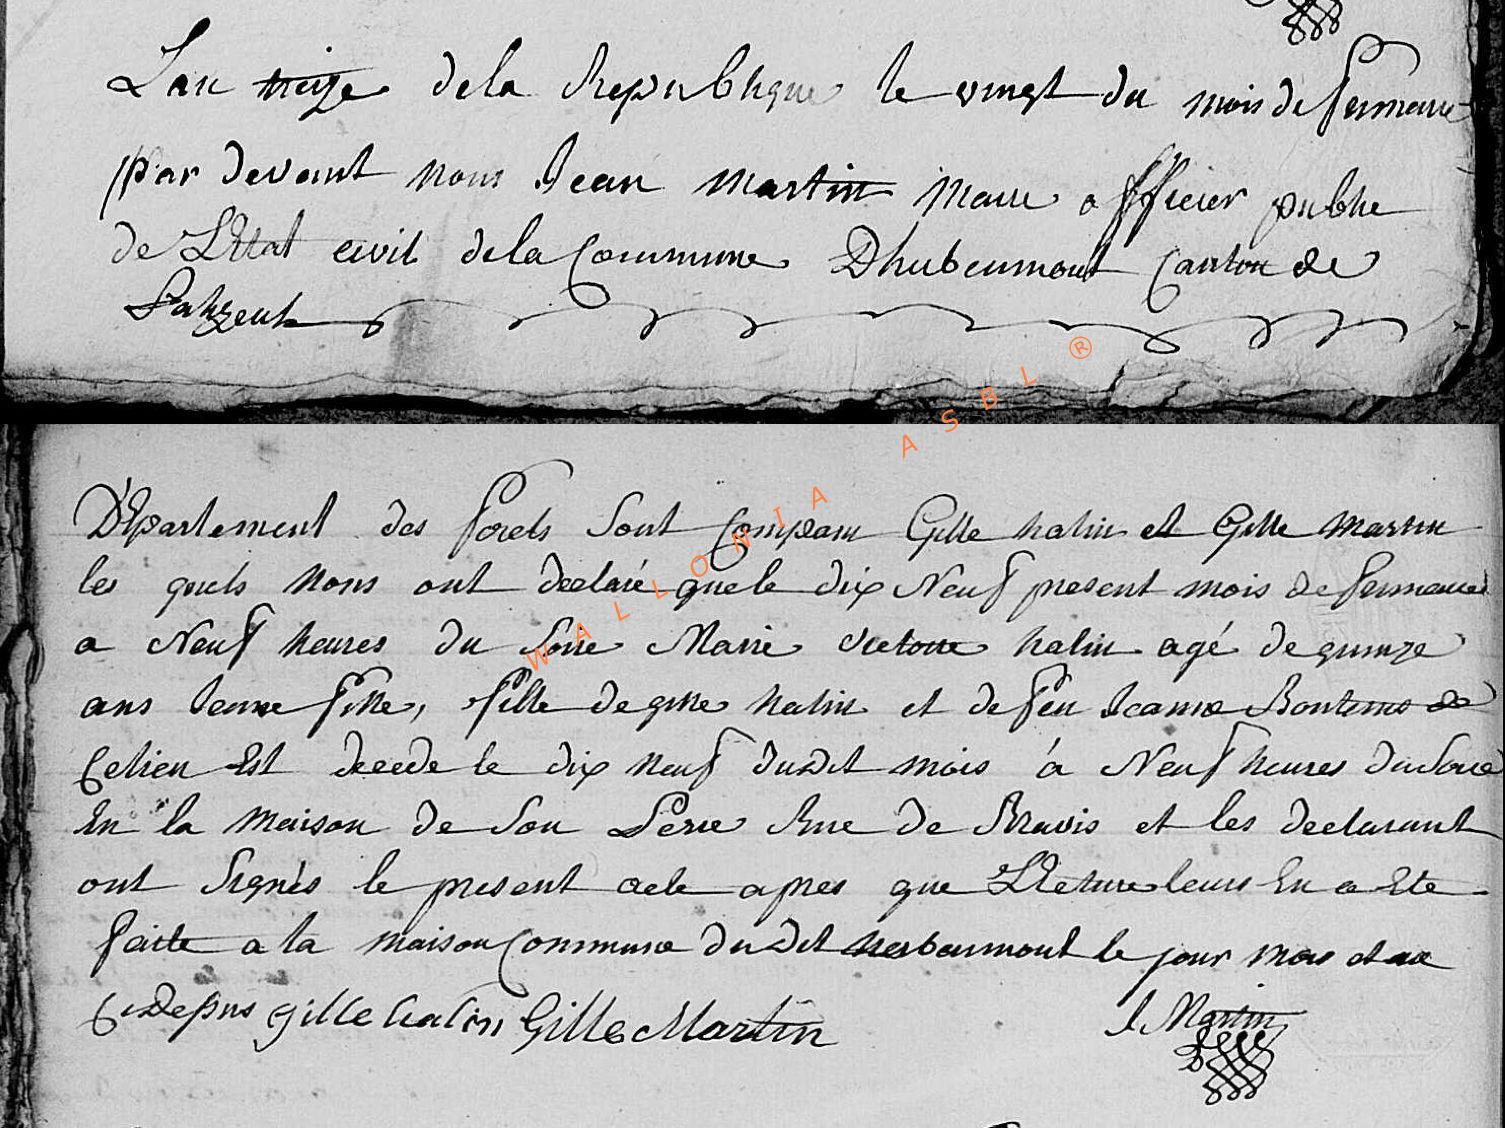 Lan treize dela Republique le vingt du mois de frimaire
par devant nous Jean Martin Maire officier publie
de L'Etat civil dela Commune Dherbeumont Canton de
Palizeul
Département des forets sont comparu Gille halin et Gille Martin
les quels nous ont declaré que le dix Neuf present mois de frimaire
a Neuf heures du soire Marie victoire halin agé de quinze
ans Jeune fille, fille de gille halin et de feu Jeanne Bontems de
Celien Est decede le dix neuf dudit mois á Neuf heures du soire
En la maison de son Pere Rue de Bravis et les declarant
ont signés le present acte apres que Lecture leurs En a Ete
faite a la maison Commune dudit herbeumont le jour mois et an
Cidesus gille halin Gille Martin J Martin
WALLONIA ASBL ®